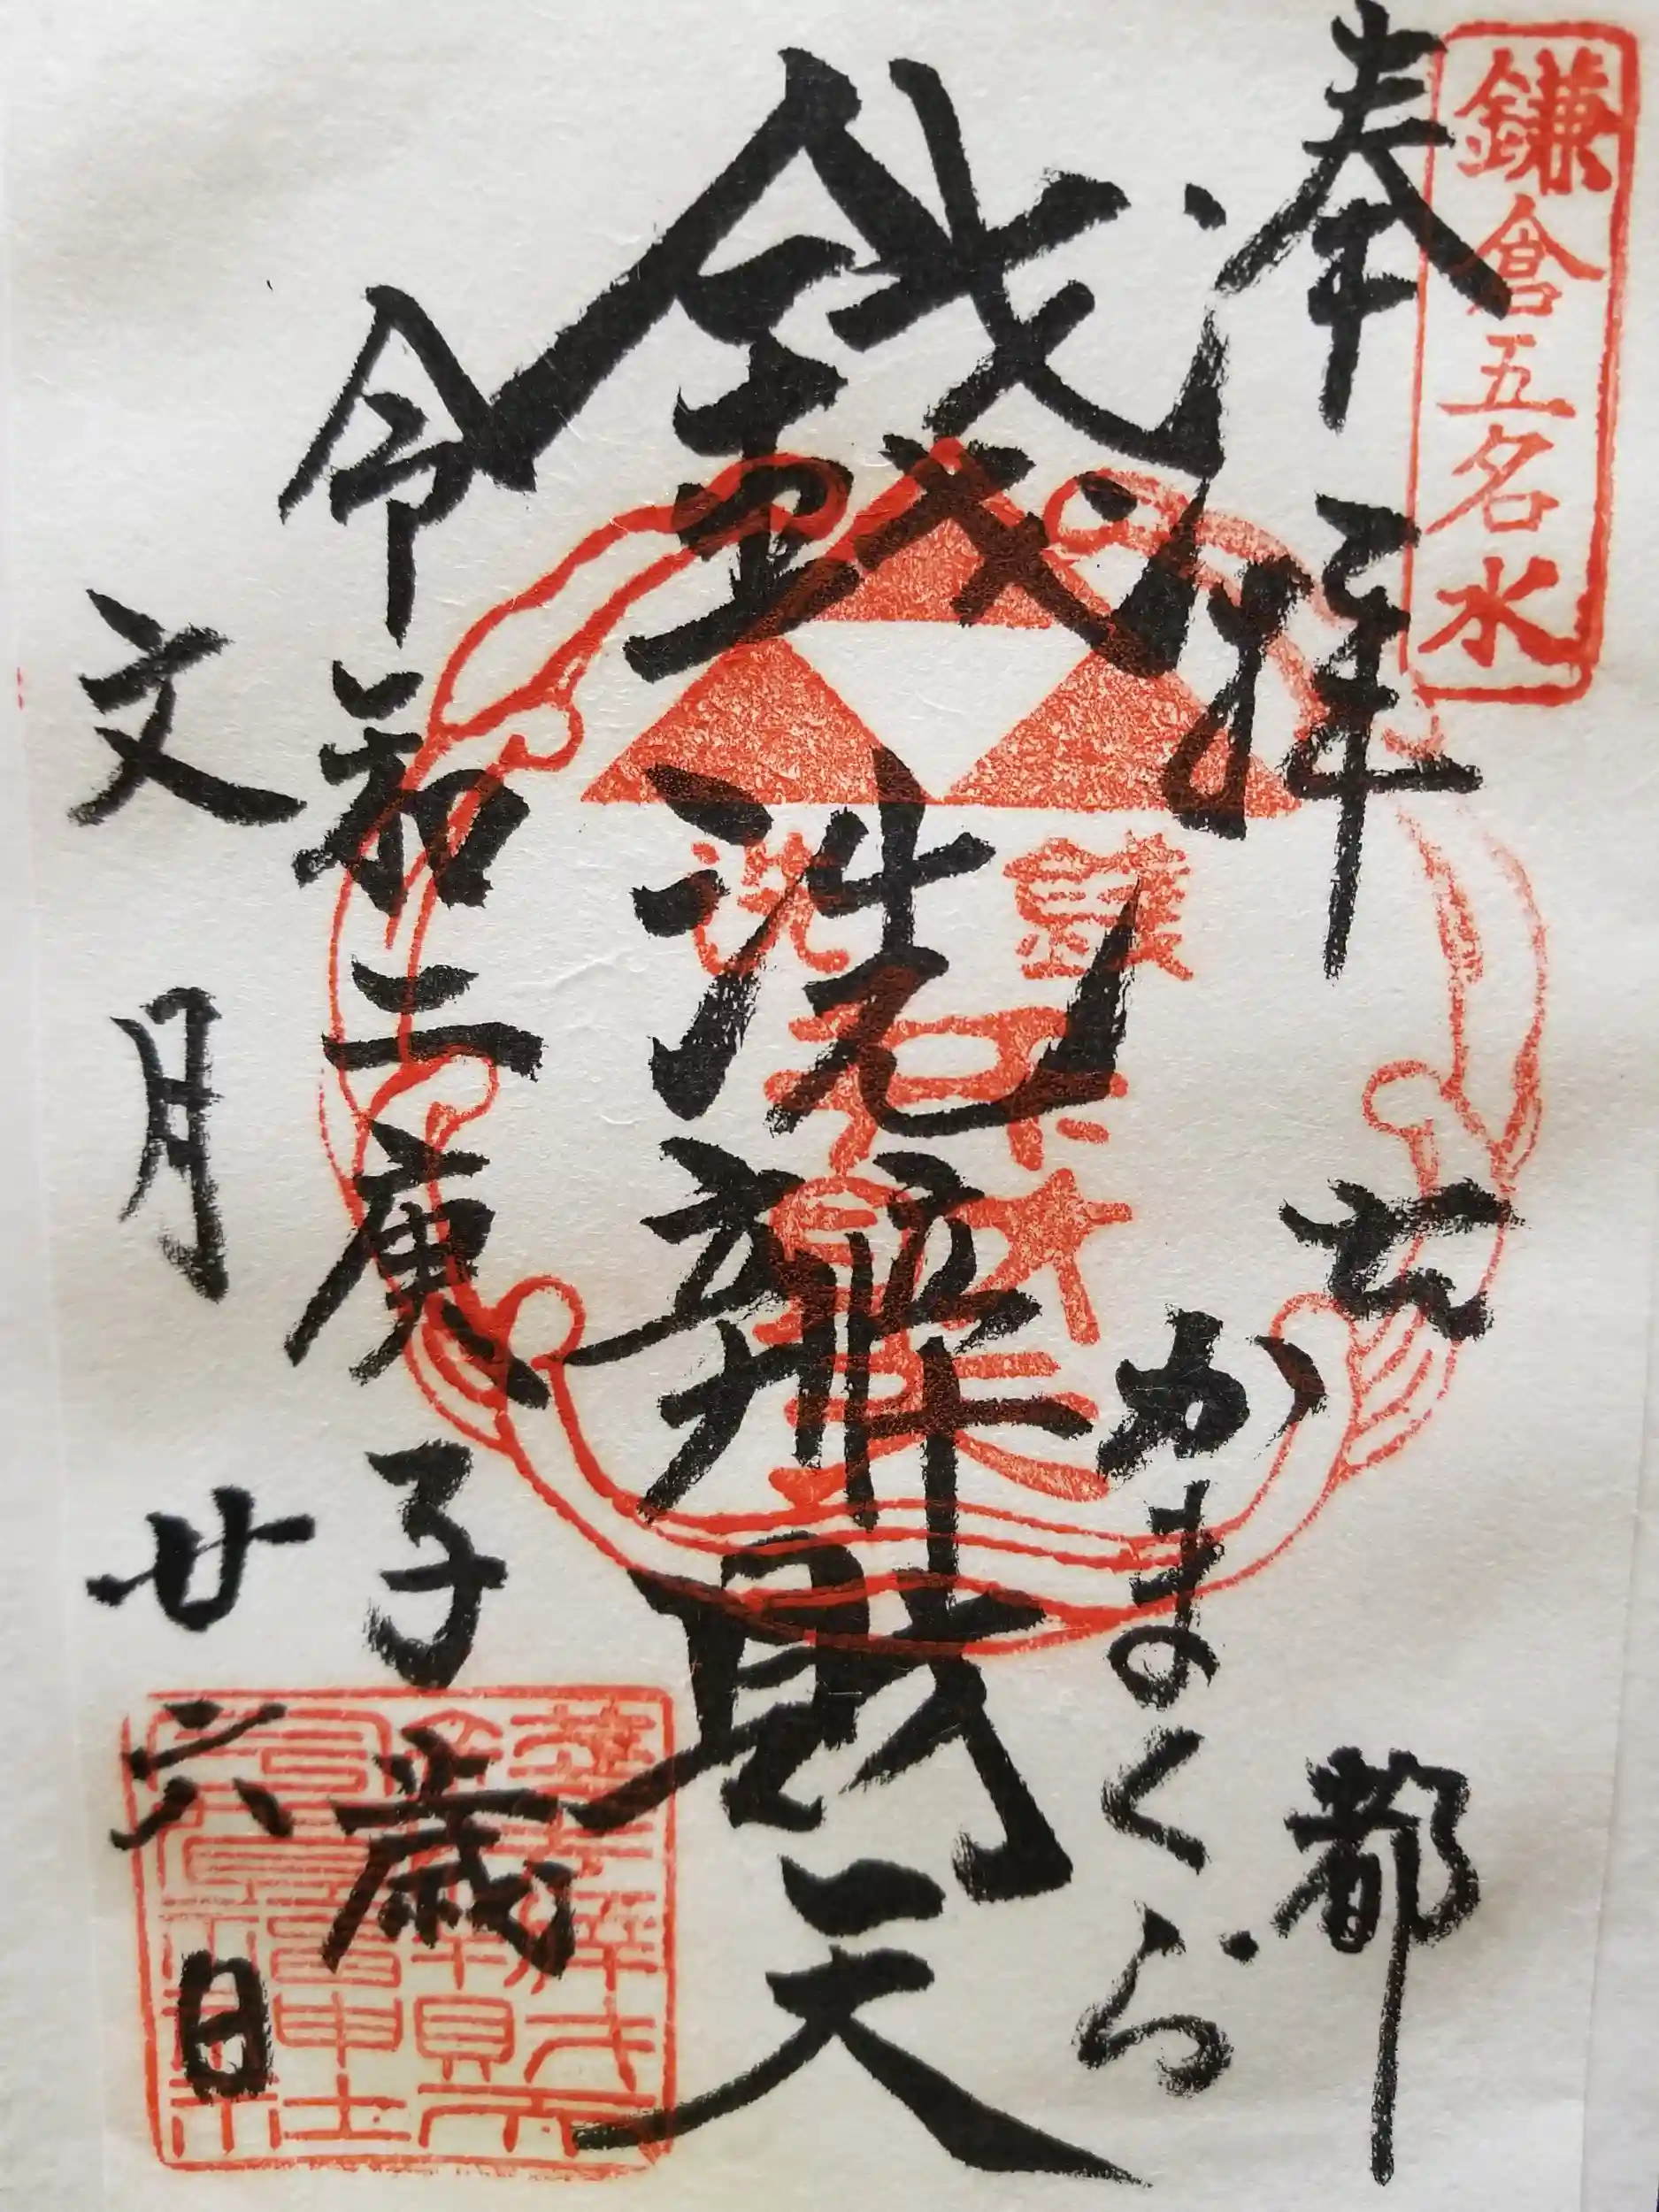 鎌倉五名水
奉拝
古都
かまくら
銭洗辨財天
銭洗
令和二庚子歳
文月廿六日